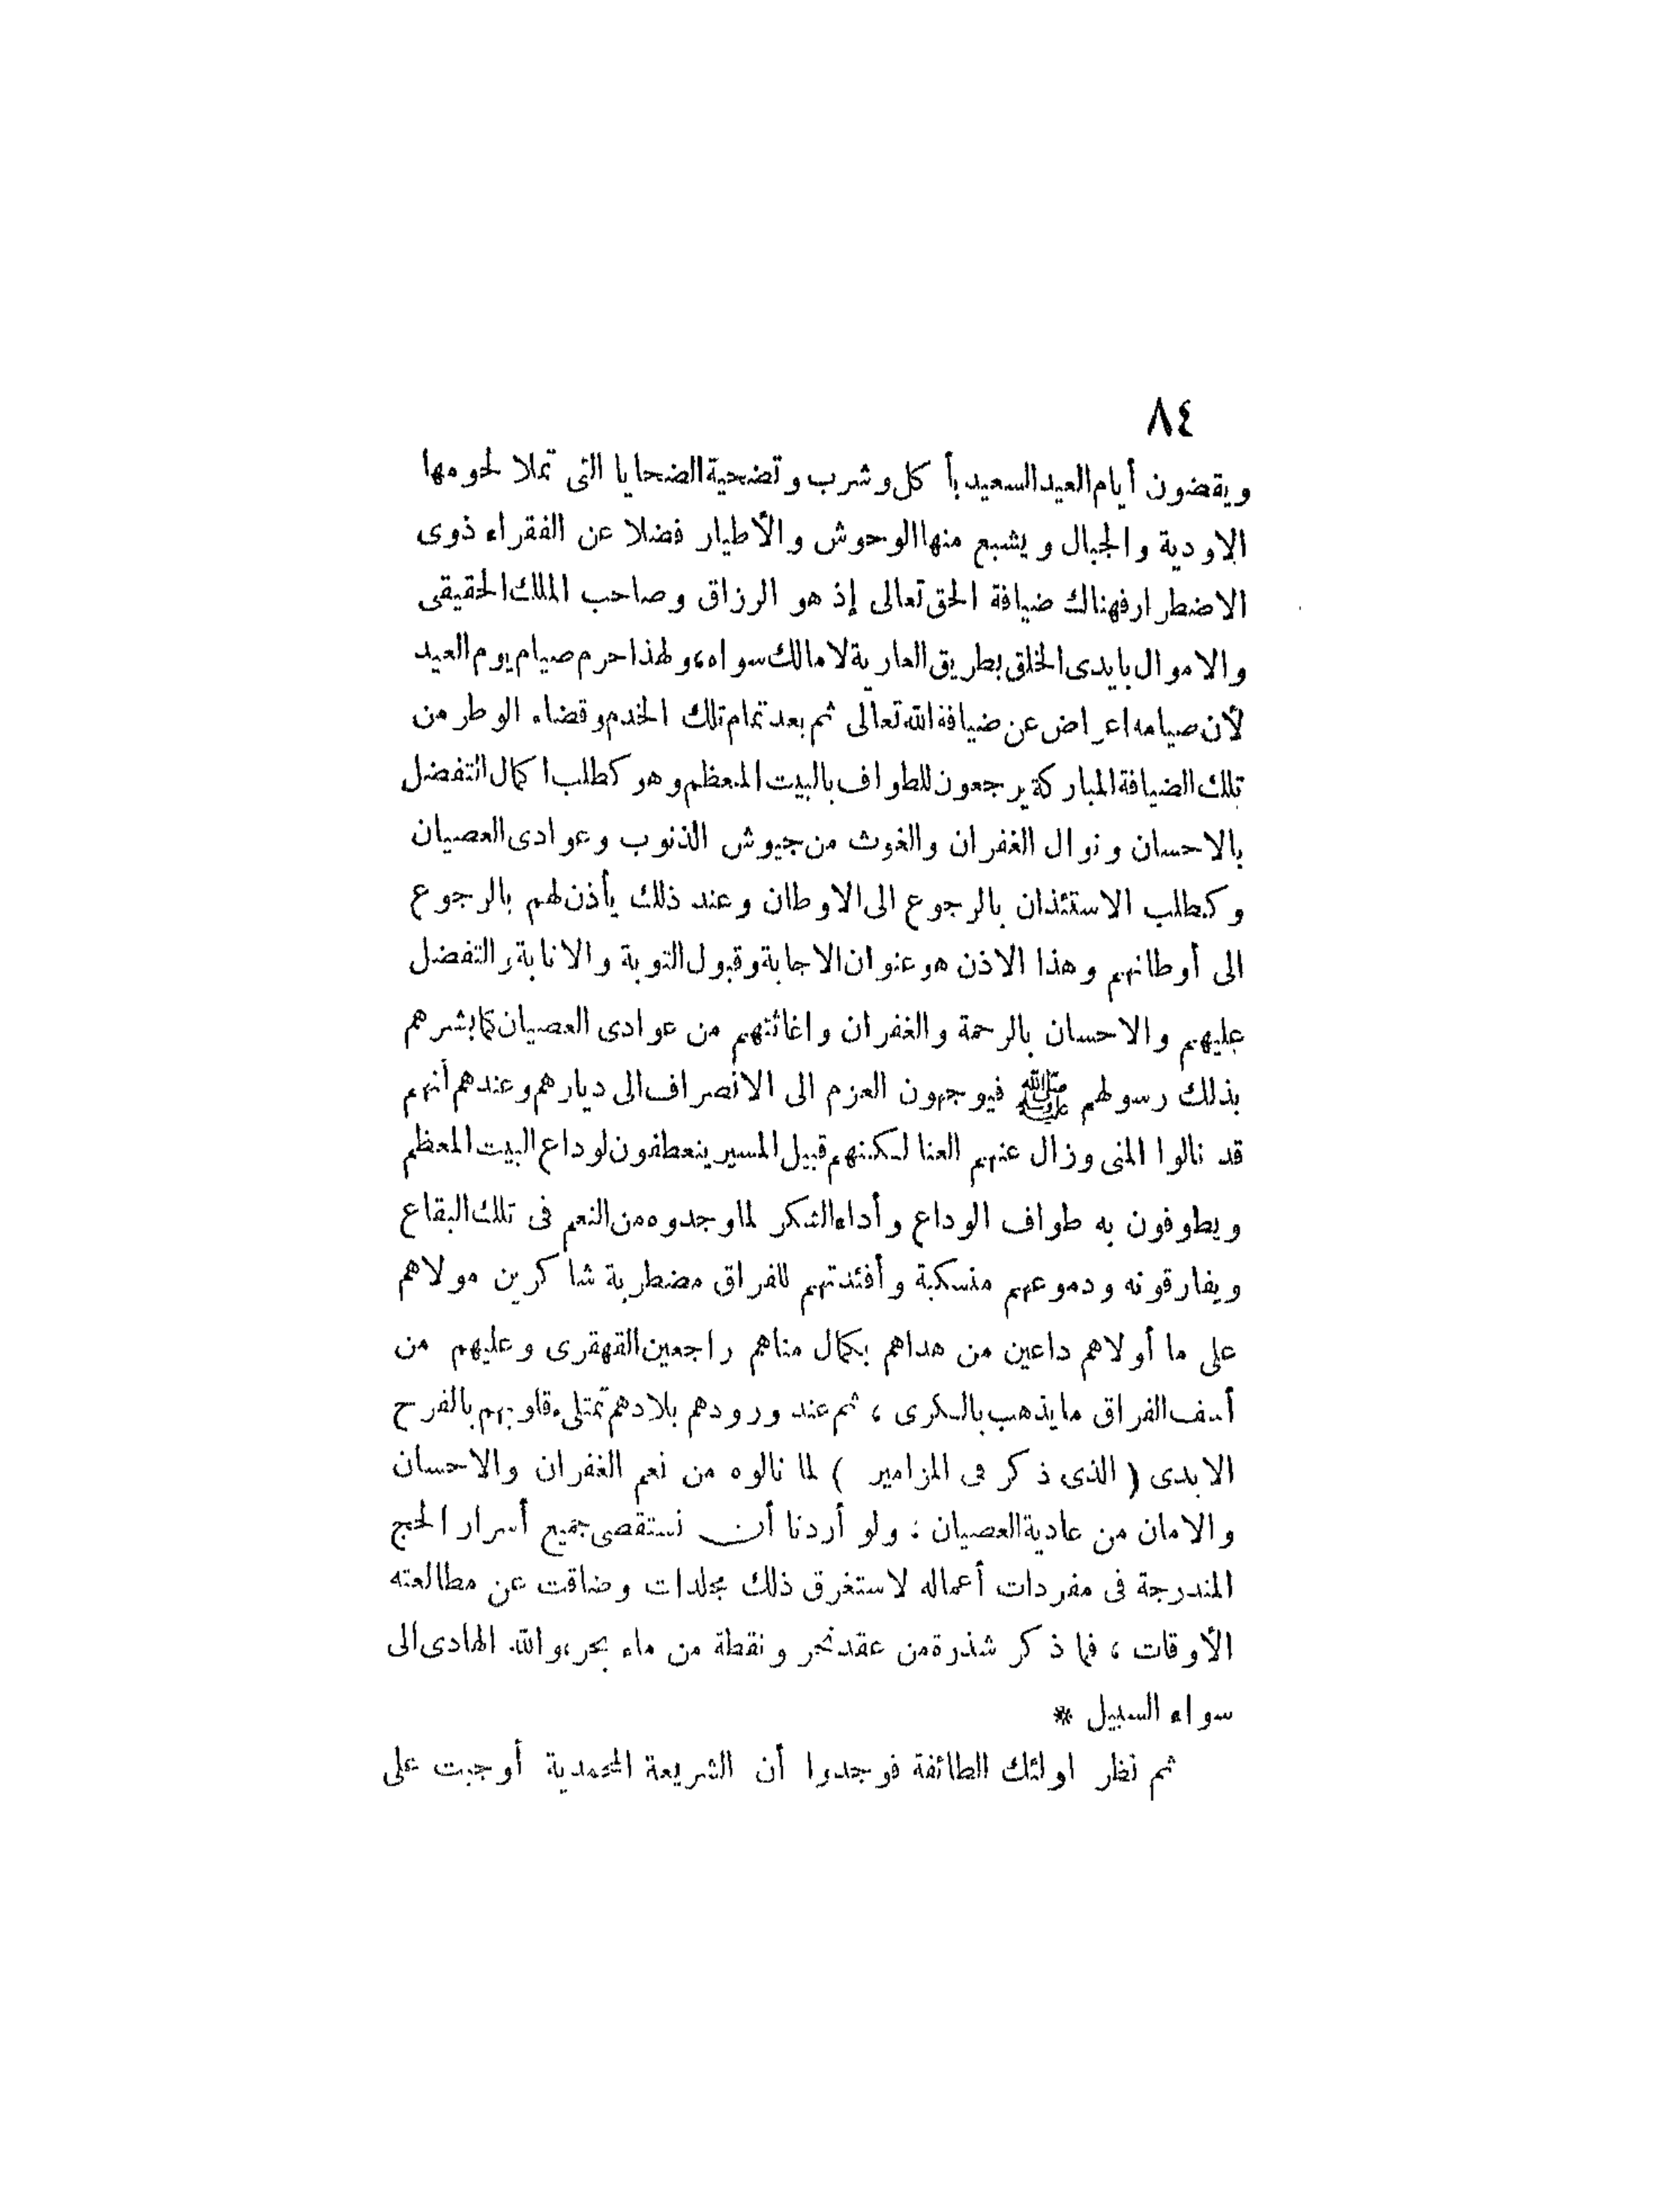 ٨٤
ويقضون أيام العيد السعيد بأكل وشرب وتضحية الضحايا التى تملا لحومها
الاودية والجبال ويشبع منها الوحوش والأطيار فضلا عن الفقراء ذوى
الاضطرار فهناك ضيافة الحق تعالى إذ هو الرزاق وصاحب الملك الحقيقى
والاموال بايدى الخلق بطريق العارية لا مالك سواه، ولهذا حرم صيام يوم العيد
لأن صيامه اعراض عن ضيافة الله تعالى ثم بعد تمام تلك الخدم وقضاء الوطر من
تلك الضيافة المباركة يرجعون للطواف بالبيت المعظم وهو كطلب اكمال التفضل
بالاحسان ونوال الغفران والغوث من جيوش الذنوب وعوادى العصيان
وكطلب الاستئذان بالرجوع الى الاوطان وعند ذلك يأذن لهم بالرجوع
الى أوطانهم وهذا الاذن هو عنوان الاجابة وقبول التوبة والانابة والتفضل
عليهم والاحسان بالرحمة والغفران واغاثتهم من عوادى العصيان كما بشرهم
بذلك رسولهم ﷺ فيوجهون العزم الى الانصراف الى ديارهم وعندهم أنهم
قد نالوا المنى وزال عنهم العنا لكنهم قبيل المسير ينعطفون لوداع البيت المعظم
ويطوفون به طواف الوداع وأداء الشكر لما وجدوه من النعم فى تلك البقاع
ويفارقونه ودموعهم منسكبة وأفئدتهم للفراق مضطربة شاكرين مولاهم
على ما أولاهم داعين من هداهم بكمال مناهم راجعين القهقرى وعليهم من
أسف الفراق ما يذهب بالكرى ، ثم عند ورودهم بلادهم تمتلىء قلوبهم بالفرح
الابدى ( الذى ذكر فى المزامير ) لما نالوه من نعم الغفران والاحسان
والامان من عادية العصيان : ولو أردنا أن نستقصى جميع أسرار الحج
المندرجة فى مفردات أعماله لاستغرق ذلك مجلدات وضاقت عن مطالعته
الأوقات ، فما ذكر شذرة من عقد نحر ونقطة من ماء بحر، والله الهادى الى
سواء السبيل *
ثم نظر اولئك الطائفة فوجدوا أن الشريعة المحمدية أوجبت على